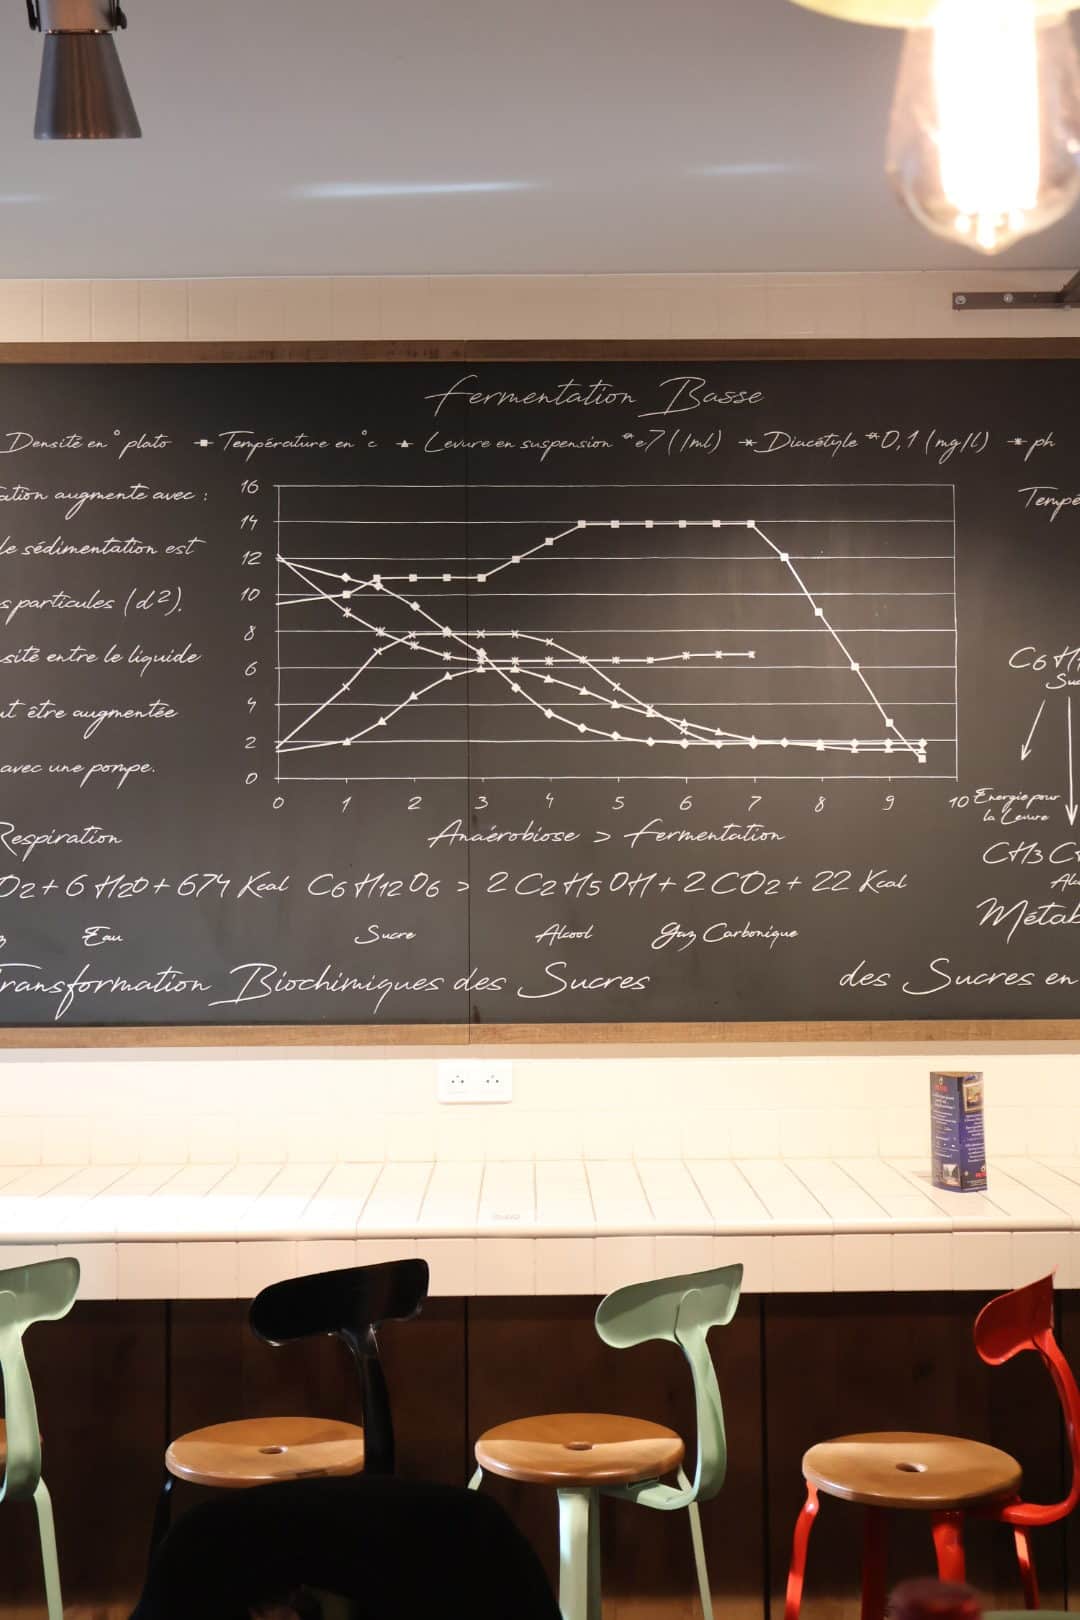 Fermentation Basse
Densité en °plato Température en °c Levure en suspension *e7 (1ml) Diacétyle *0,1 (mg/l) ph
augmente avec :
sédimentation est
particules (d2).
entre le liquide
être augmentée
avec une pompe.
16
14
12
10
8
6
4
2
0
0 1 2 3 4 5 6 7 8 9 10
Energie pour
la Levure
Respiration
Anaérobiose > Fermentation
O2 + 6 H2O + 674 Kcal
C6 H12 O6 > 2 C2 H5 OH + 2 CO2 + 22 Kcal
Eau
Sucre Alcool Gaz Carbonique
Transformation Biochimiques des Sucres
des Sucres en